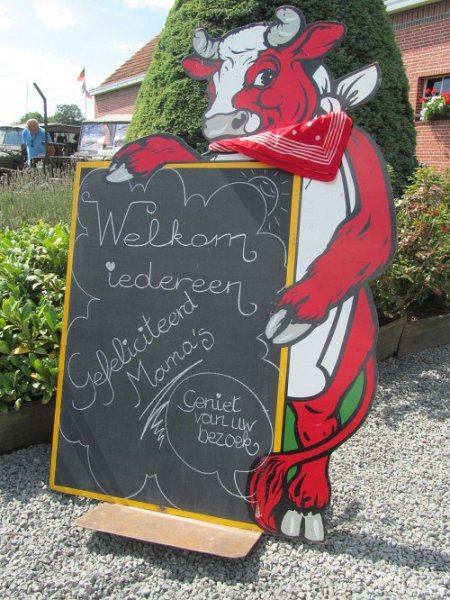 Welkom
iedereen
Gefeliciteerd
Mama's
Geniet
van uw
bezoek